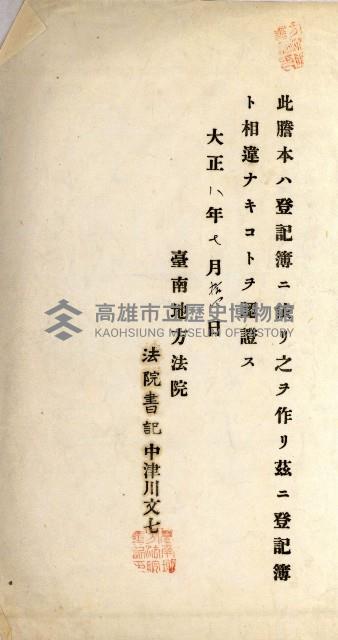 此謄本ハ登記簿ニ依リ之ヲ作リ茲ニ登記簿
ト相違ナキコトヲ認證ス
大正八年七月 日
臺南地方法院
法院書記中津川文七
高雄市立歷史博物館
KAOHSIUNG MUSEUM OF HISTORY